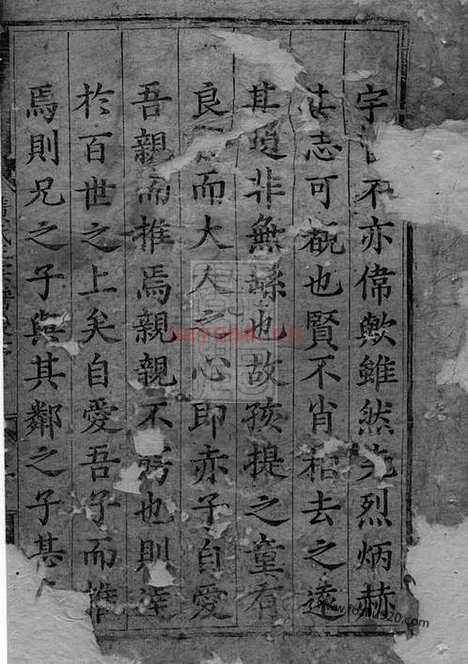 宇不亦偉歟雖然先烈炳赫
志可槪也賢不肖相去之遠
其道非無繇也故孩提之童有
良而大人之心即赤子自愛
吾親而推焉親親不匃也則達
於百世之上矣自愛吾子而推
焉則兄之子與其鄰之子甚
nayona.cn